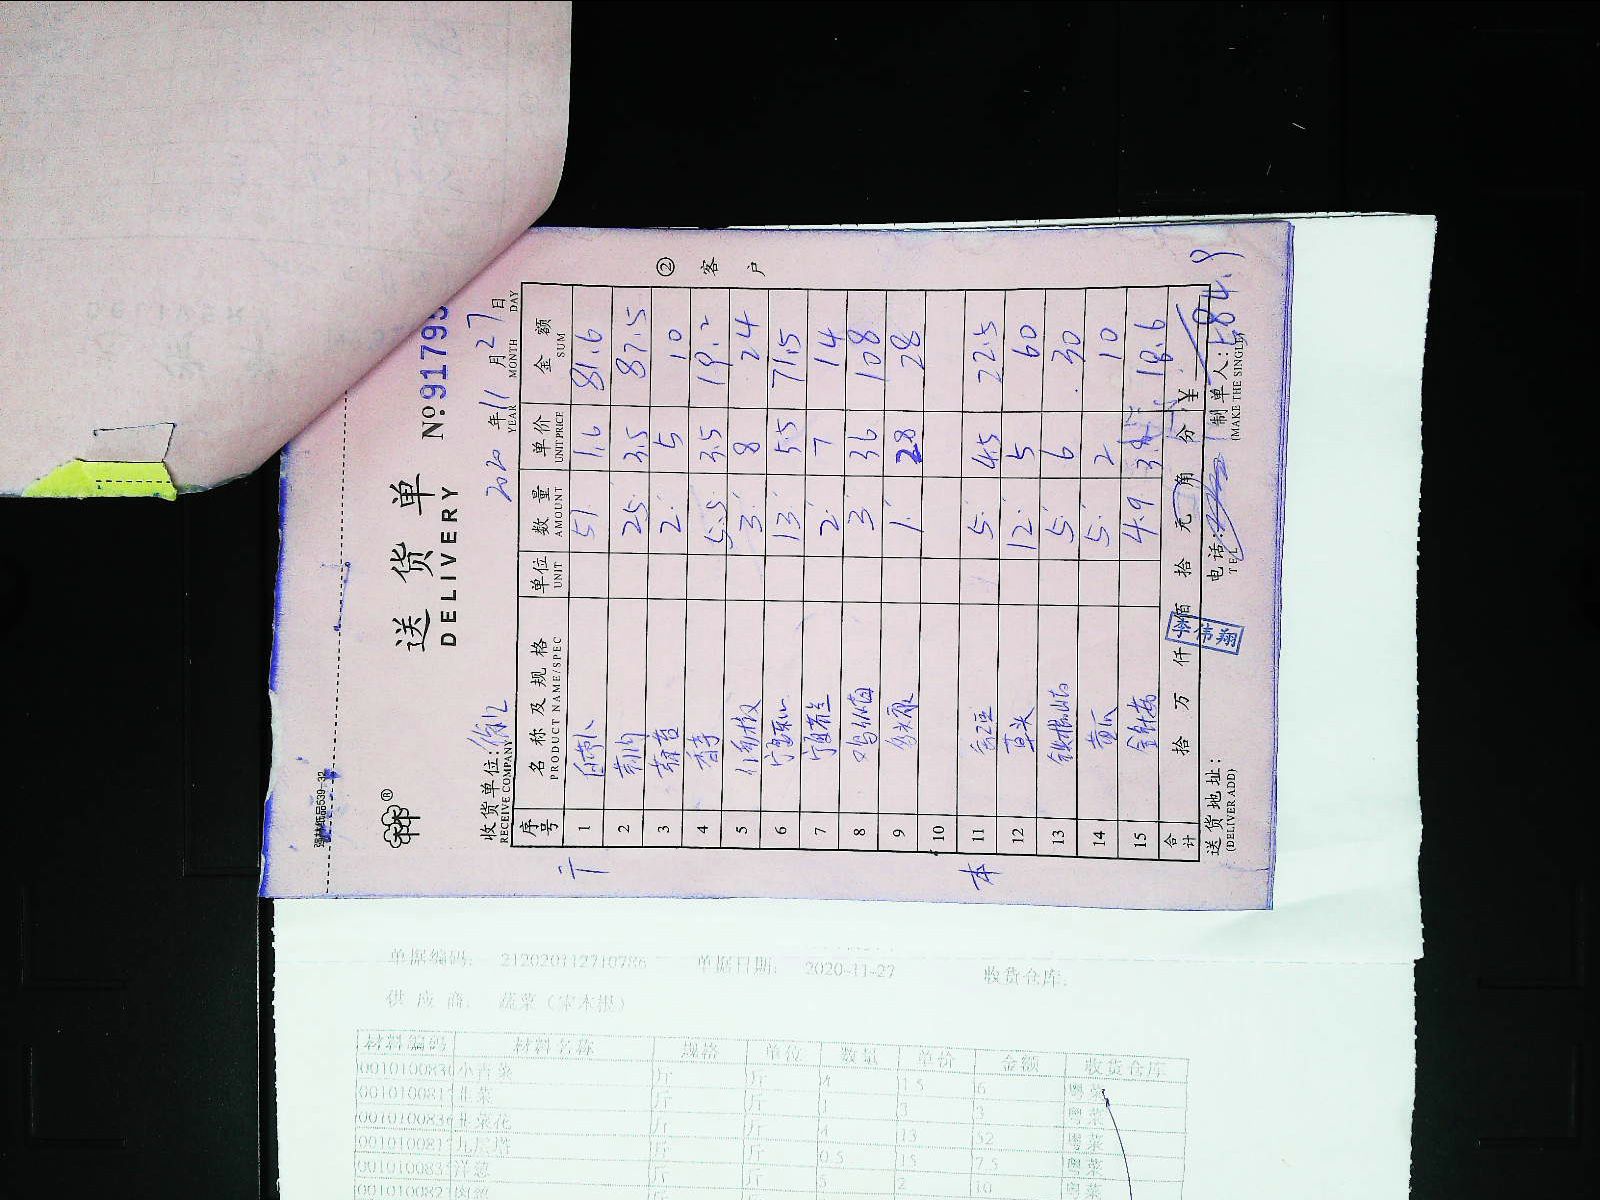 强林纸品539-32
送货单
DELIVERY
№ 91795
收货单位:
RECEIVE COMPANY
2020 年 11 月 27 日
YEAR MONTH DAY
序号 名称及规格 单位 数量 单价 金额
PRODUCT NAME/SPEC UNIT AMOUNT UNIT PRICE SUM
1 白萝卜 51 1.6 81.6
2 25 3.5 87.5
3 2 5 10
4 5.5 3.5 19.2
5 3 8 24
6 13 5.5 71.5
7 2 7 14
8 3 36 108
9 1 28 28
10
11 5 4.5 22.5
12 草头 12 5 60
13 铁棍山药 5 6 30
14 黄瓜 5 2 10
15 金针菇 4.9 3.8 18.6
合计 拾 万 仟 佰 拾 元 角 分 ¥ 584.9
送货地址: 电话: 制单人:
(DELIVER ADD) TEL (MAKE THE SINGLE)
②客户
李伟翔
单据编码: 212020112710786 单据日期: 2020-11-27 收货仓库:
供应商: 蔬菜
材料编码 材料名称 规格 单位 数量 单价 金额 收货仓库
001010083 小青菜 斤 斤 4 1.5 6 粤菜
001010081 韭菜 斤 斤 1 3 3 粤菜
001010083 韭菜花 斤 斤 4 13 52 粤菜
001010081 九层塔 斤 斤 0.5 15 7.5 粤菜
001010083 洋葱 斤 斤 5 2 10 粤菜
001010082